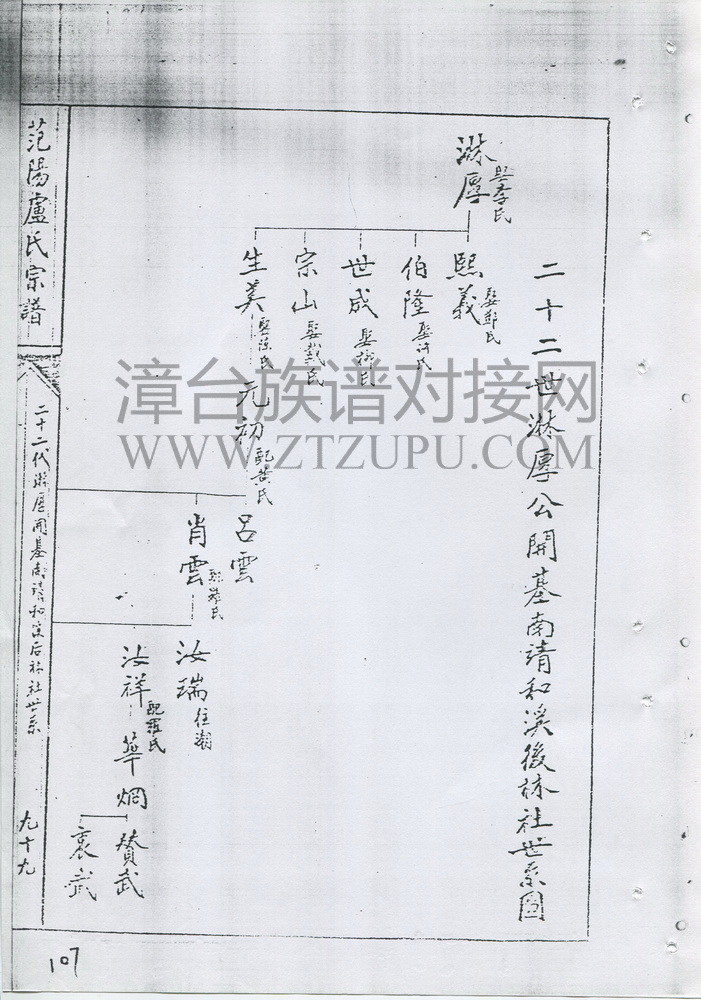 二十二世淋厚公開基南靖和溪後林社世系圖
淋厚
娶李氏
熙義
娶鄭氏
伯隆
娶許氏
世成
娶柳氏
宗山
娶戴氏
生美
娶陳氏
元初
配黃氏
呂雲
肖雲
汝瑞
往潮
汝祥
配羅氏
華炯
贊武
襄武
范陽盧氏宗譜
二十二代淋厚開基南靖和溪后林社世系
九十九
107
漳台族谱对接网
WWW.ZTZUPU.COM